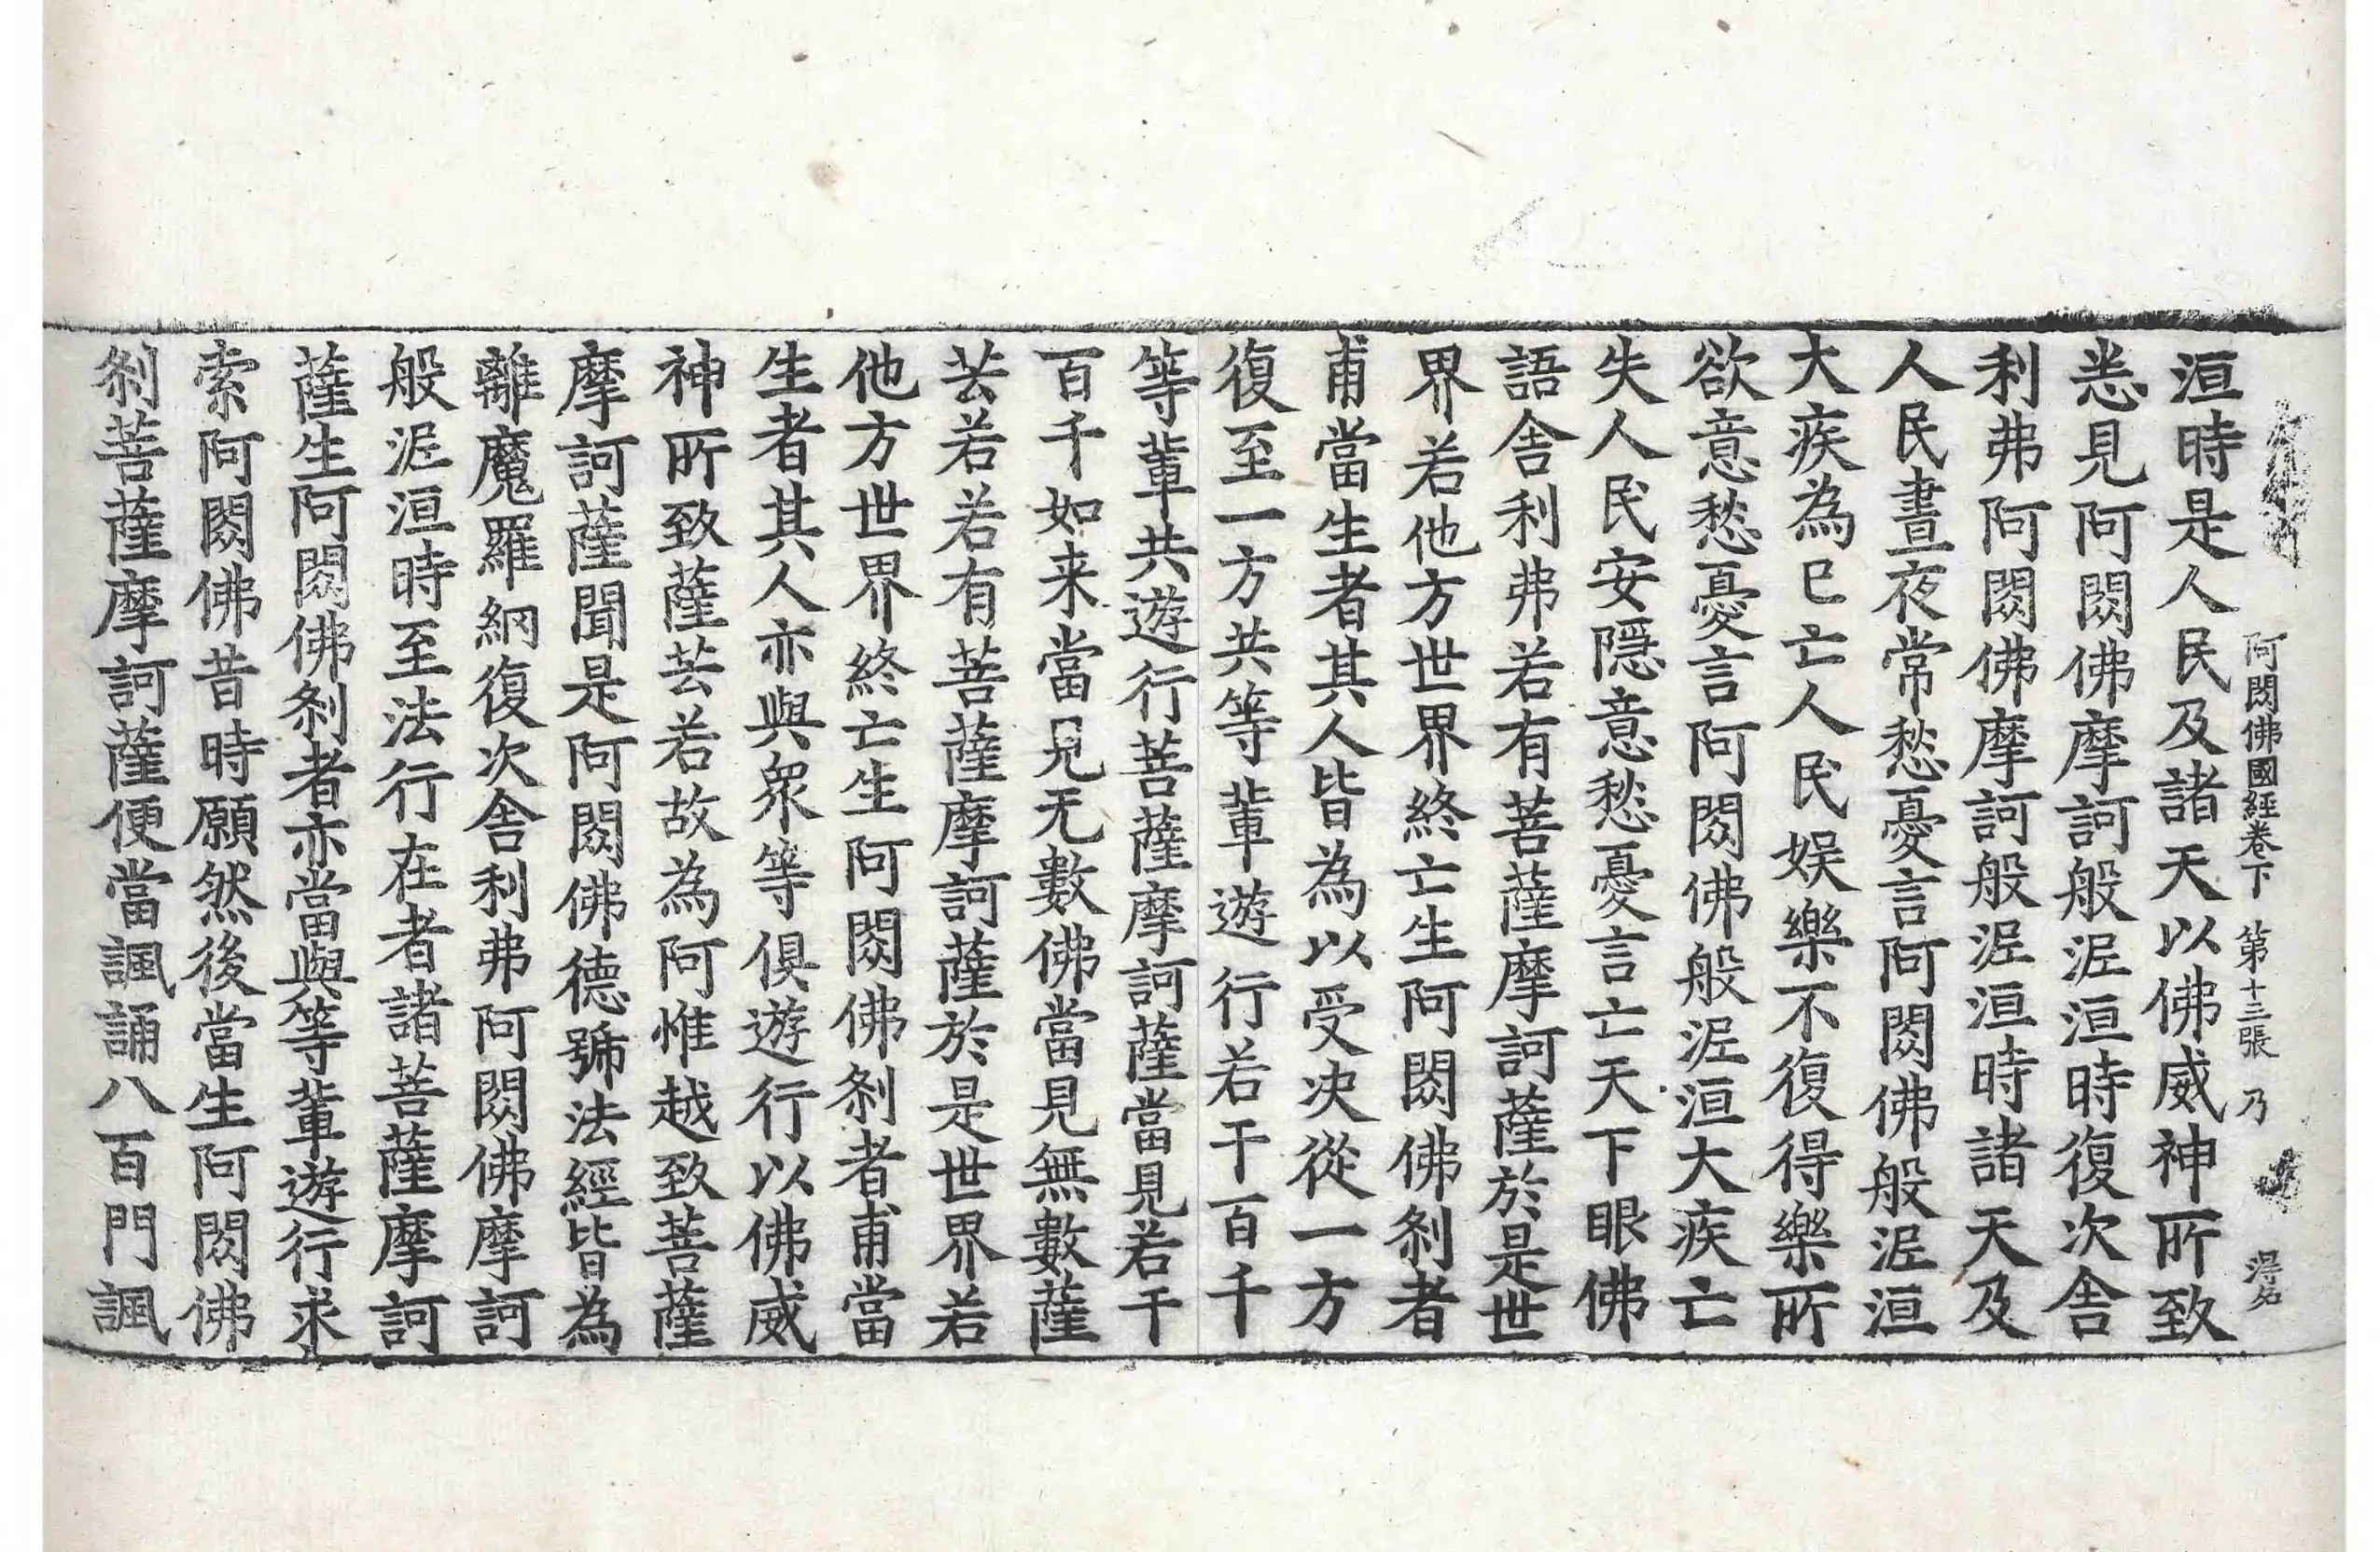 阿閦佛國經卷下 第十三張 乃 得名
洹時是人民及諸天以佛威神所致
悉見阿閦佛摩訶般泥洹時復次舍
利弗阿閦佛摩訶般泥洹時諸天及
人民晝夜常愁憂言阿閦佛般泥洹
大疾為已亡人民娛樂不復得樂所
欲意愁憂言阿閦佛般泥洹大疾亡
失人民安隱意愁憂言亡天下眼佛
語舍利弗若有菩薩摩訶薩於是世
界若他方世界終亡生阿閦佛剎者
甫當生者其人皆為以受决從一方
復至一方共等輩遊行若干百千
等輩共遊行菩薩摩訶薩當見若干
百千如来當見无數佛當見無數薩
芸若若有菩薩摩訶薩於是世界若
他方世界終亡生阿閦佛剎者甫當
生者其人亦與衆等俱遊行以佛威
神所致薩芸若故為阿惟越致菩薩
摩訶薩聞是阿閦佛德號法經皆為
離魔羅網復次舍利弗阿閦佛摩訶
般泥洹時至法行在者諸菩薩摩訶
薩生阿閦佛剎者亦當與等輩遊行求
索阿閦佛昔時願然後當生阿閦佛
剎菩薩摩訶薩便當諷誦八百門諷